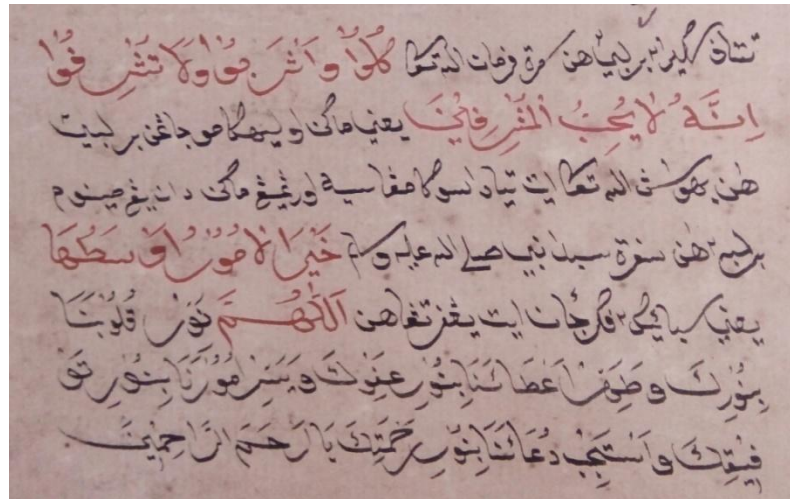 تتاف برلبيهاهن سفرة فرمان الله تعا كُلُوْا وَاثْرَبُوْا وَلَا تَثْرِفُوْا
اِنَّهُ لَا يُحِبُّ الْمُثْرِفِيْنَ يعني ماكن اوليهكامو جاڠن برلبيه
هن بهوسڽ الله تعا ايت تياد اي سوكا مڠاسيه اورڠ يڠ ماكن دان يڠ مينوم
برلبيه٢هن سفرة سبدا نبي صلى الله عليه وسلم خَيْرُ الْاُمُوْرُ اَوْسَطُهَا
يعني سبايك٢ فكرجاان ايت يڠ فرتڠاهن اَللّٰهُمَّ نَوِّرْ قُلُوْبَنَا
بِنُوْرِكَ وَطَهِّرْ اَعْضَائَنَا بِنُوْرِ عَفْوِكَ وَيَسِّرْ اُمُوْرَنَا بِنُوْرِ تَوْ
فِيْقِكَ وَاسْتَجِبْ دُعَائَنَا بِنُوْرِ رَحْمَتِكَ يَا اَرْحَمَ الرَّاحِمِيْنَ